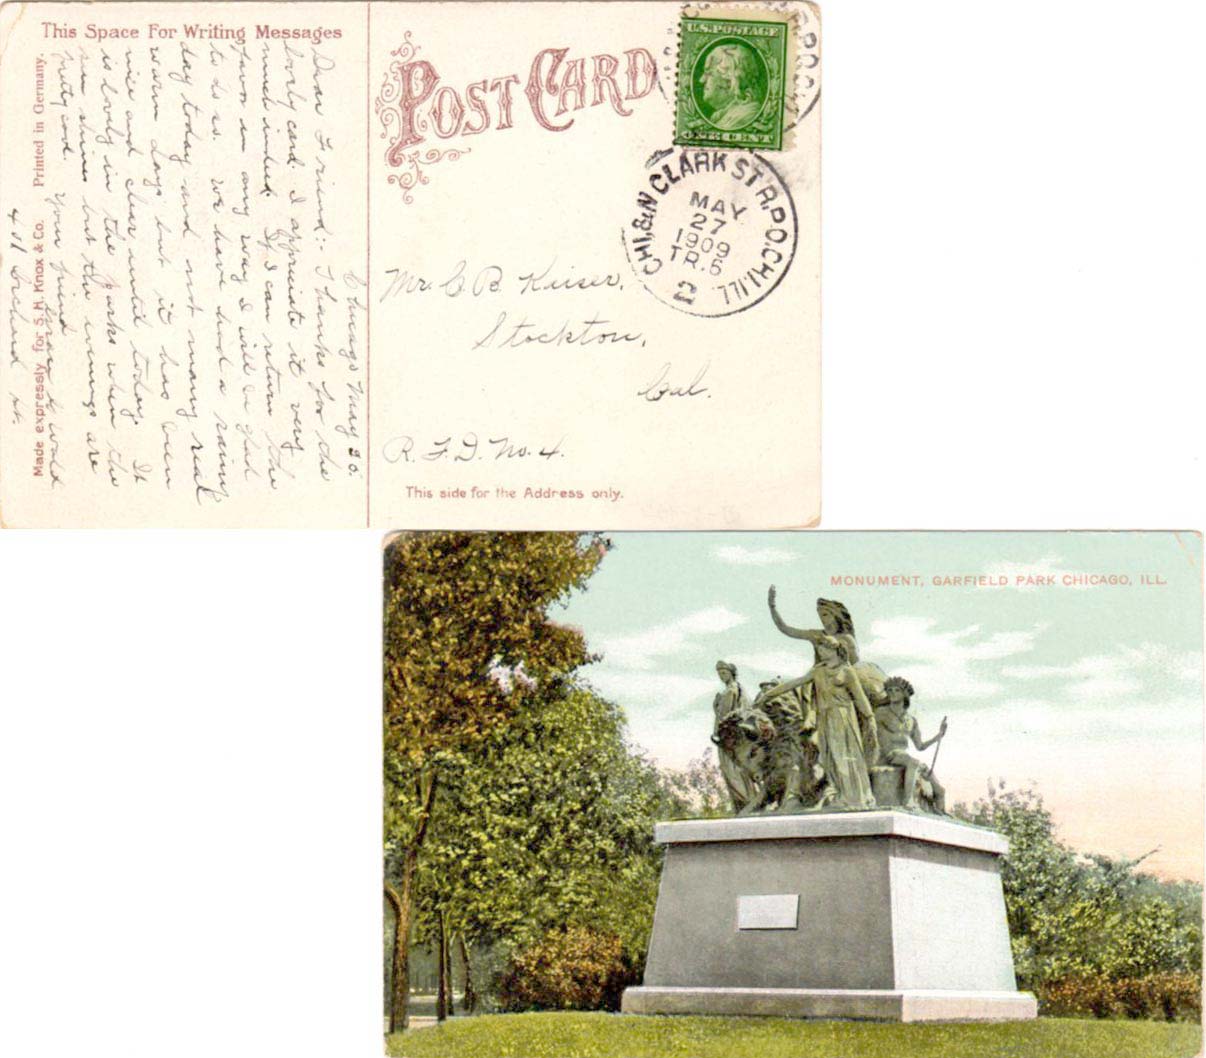 This Space For Writing Messages
Chicago May 26.
Dear Friend:- Thanks for the
lovely card. I appreciate it very
much indeed. If I can return the
favor in any way I will be glad
to do so. We have had a rainy
day today and not many real
warm days but it has been
nice and clear until today. It
is lovely in the Parks when the
sun shines but the evenings are
pretty cool. Your friend
Wold
401 st.
Made expressly for S. H. Knox & Co. Printed in Germany.
POST CARD
U.S. POSTAGE
ONE CENT
CHI. & N CLARK ST R.P.O. CHI. ILL
MAY
27
1909
TR.5
2
Mr. C. B. Kaiser,
Stockton,
Cal.
R. F. D. No. 4.
This side for the Address only.
MONUMENT, GARFIELD PARK CHICAGO, ILL.